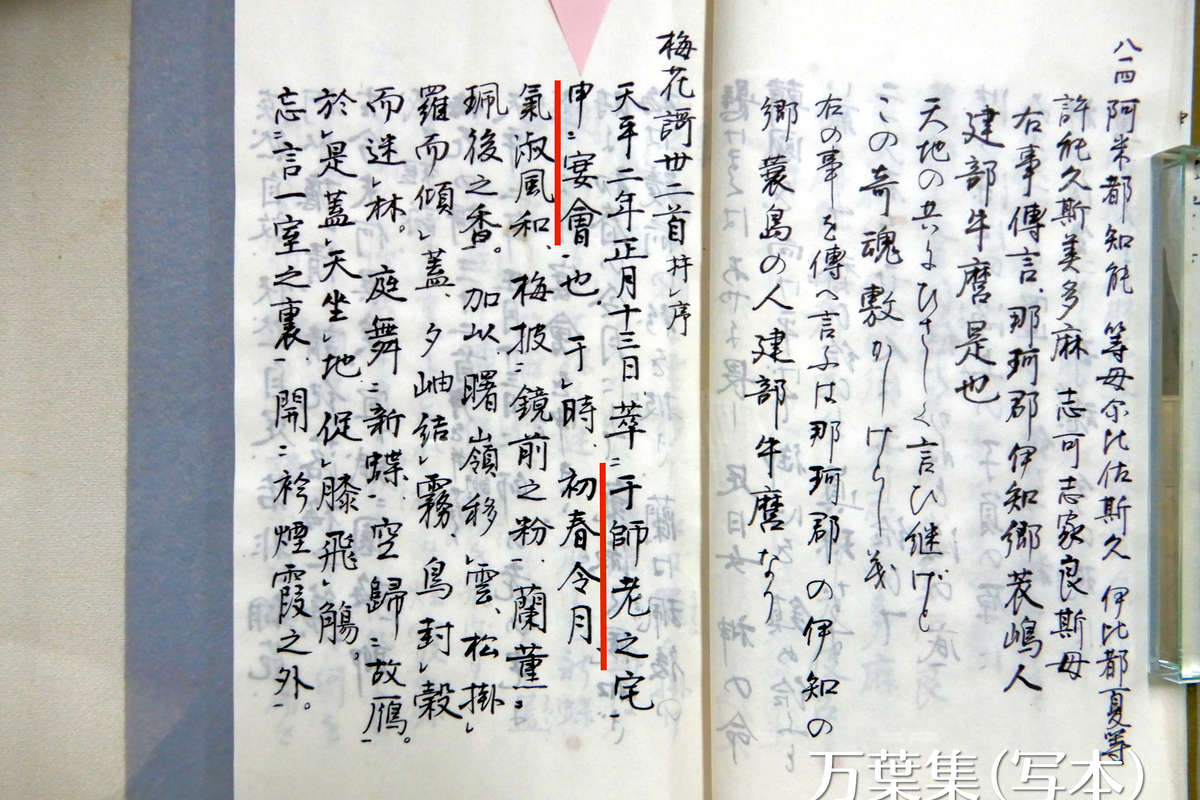 八一四阿米都知能 等母尓比佐斯久 伊比都夏等
許能久斯美多麻 志可志家良斯母
右事傳言、那珂郡伊知郷蓑嶋人
建部牛麿是也
天地の共にひさしく言ひ継げと
この奇魂敷かしけらし
右の事を傳へ言ふは那珂郡の伊知の
郷 蓑島の人建部牛麿なり
梅花謌卅二首并レ序
天平二年正月十三日、萃二于師老之宅一
申二宴會一也、于レ時、初春令月、
氣淑風和、梅披二鏡前之粉一、蘭薫二
珮後之香一。加以、曙嶺移レ雲、松掛レ
羅而傾レ蓋、夕岫結レ霧、鳥封レ縠
而迷レ林。庭舞二新蝶一、空歸二故雁一。
於レ是蓋レ天坐レ地、促レ膝飛レ觴。
忘二言一室之裏一、開二衿煙霞之外一。
万葉集（写本）